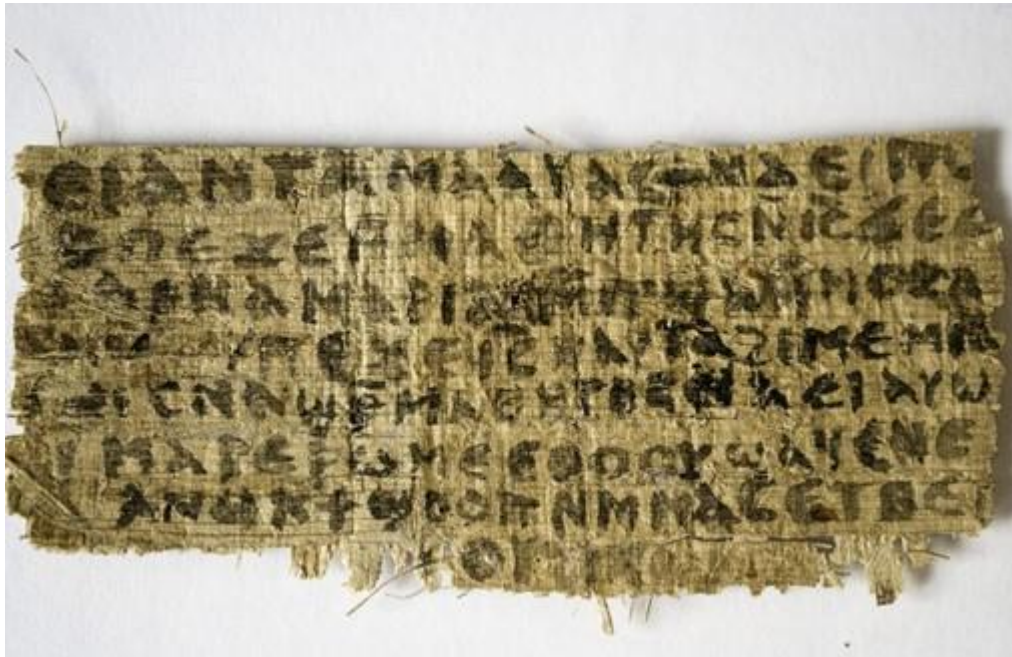 ⲉⲓⲁⲛⲧⲁⲙⲁⲁⲩⲁⲥϯⲛⲁⲉⲓⲡ
ⲡⲉϫⲉⲙⲙⲁⲑⲏⲧⲏⲥⲛⲓⲥϫⲉⲥ
ⲁⲣⲛⲁⲙⲁⲣⲓⲁⲙⲙⲡϣⲁⲙⲙⲟⲥⲁ
ⲡⲉϫⲉⲓⲥⲛⲁⲩⲧⲁϩⲓⲙⲉⲙⲛ
ⲥⲛⲁϣⲣⲙⲁⲑⲏⲧⲏⲥⲛⲁⲉⲓⲁⲩⲱ
ⲓⲙⲁⲣⲉⲣⲱⲙⲉⲉⲑⲟⲟⲩϣⲁϥⲉⲛⲉ
ⲁⲛⲟⲕϯϣⲟⲟⲡⲛⲙⲙⲁⲥⲉⲧⲃⲉ